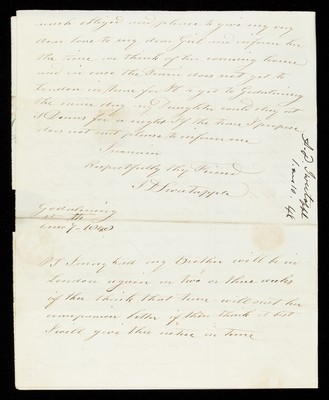 much obliged and please to give my very
dear love to my dear Girl and inform her
the time we think of her coming home
and in case the Train does not get to
London in time for to get to Godalming
the same day my Daughter could stay at
for a night if the time I propose
does not suit please to inform me
I remain
Respectfully thy Friend
Godalming
PS I may add my Brother will be in
London again in two or three weeks
if thee think that time will suit her
companion better if thee think it best
I will give thee notice in time